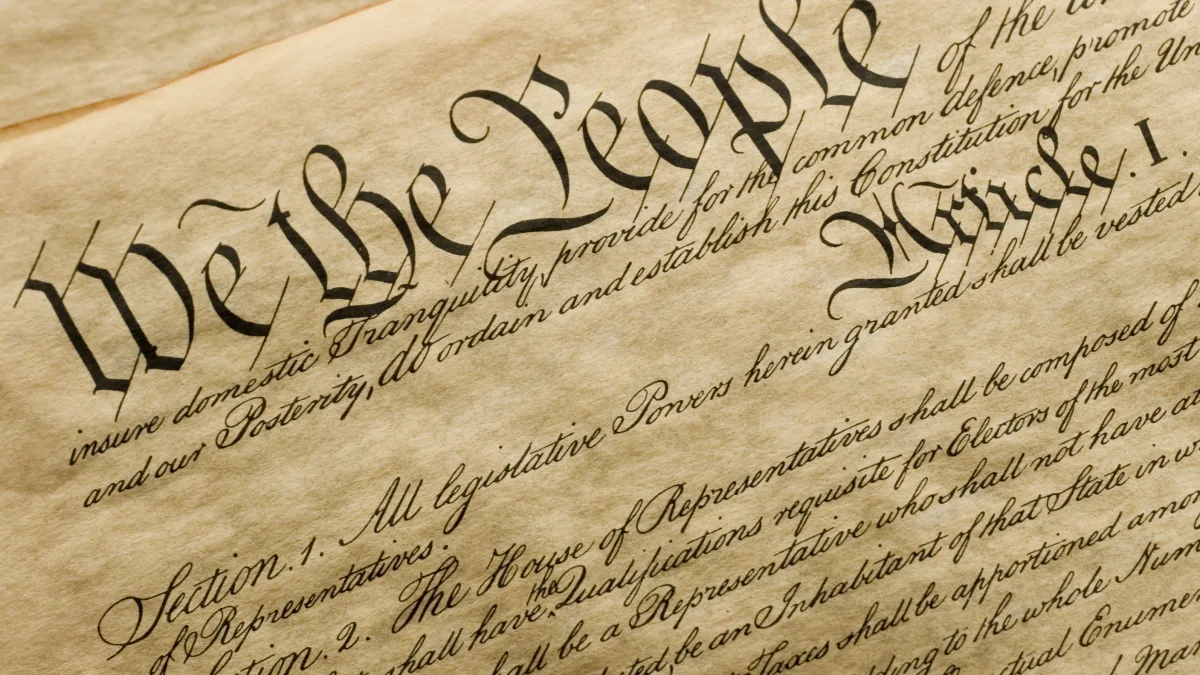 We the People of the
insure domestic Tranquility, provide for the common defence, promote
and our Posterity, do ordain and establish this Constitution for the Un
Article. I.
Section. 1. All legislative Powers herein granted shall be vested
of Representatives.
ction. 2. The House of Representatives shall be composed of
shall have the Qualifications requisite for Electors of the most
all be a Representative who shall not have at
ted, be an Inhabitant of that State in w
Taxes shall be apportioned amon
ding to the whole Num
ctual Enumer